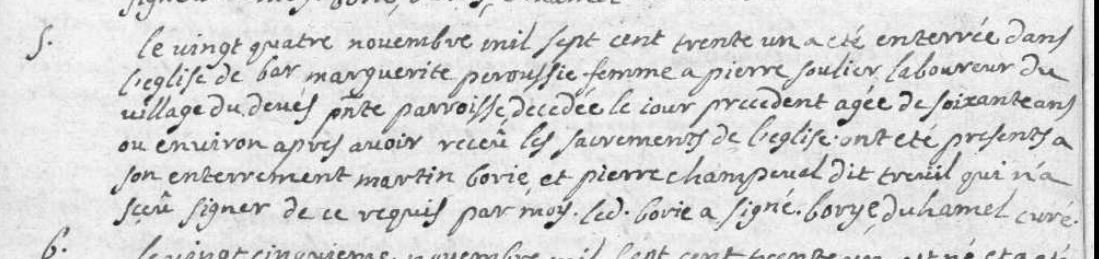 S. le vingt quatre novembre mil sept cent trente un a eté enterrée dans
l'eglise de bar marguerite peroussie femme a pierre soulier laboureur du
village du devés pnte parroisse, decedée le iour precedent agée de soixante ans
ou environ apres avoir receu les sacrements de l'eglise. ont eté presents a
son enterrement martin borie, et pierre champeval dit treuil qui n'a
sceu signer de ce requis par moy. led. borie a signé. borye, duhamel curé.
6. le vingt cinquieme novembre mil sept cent trente un est né et a eté